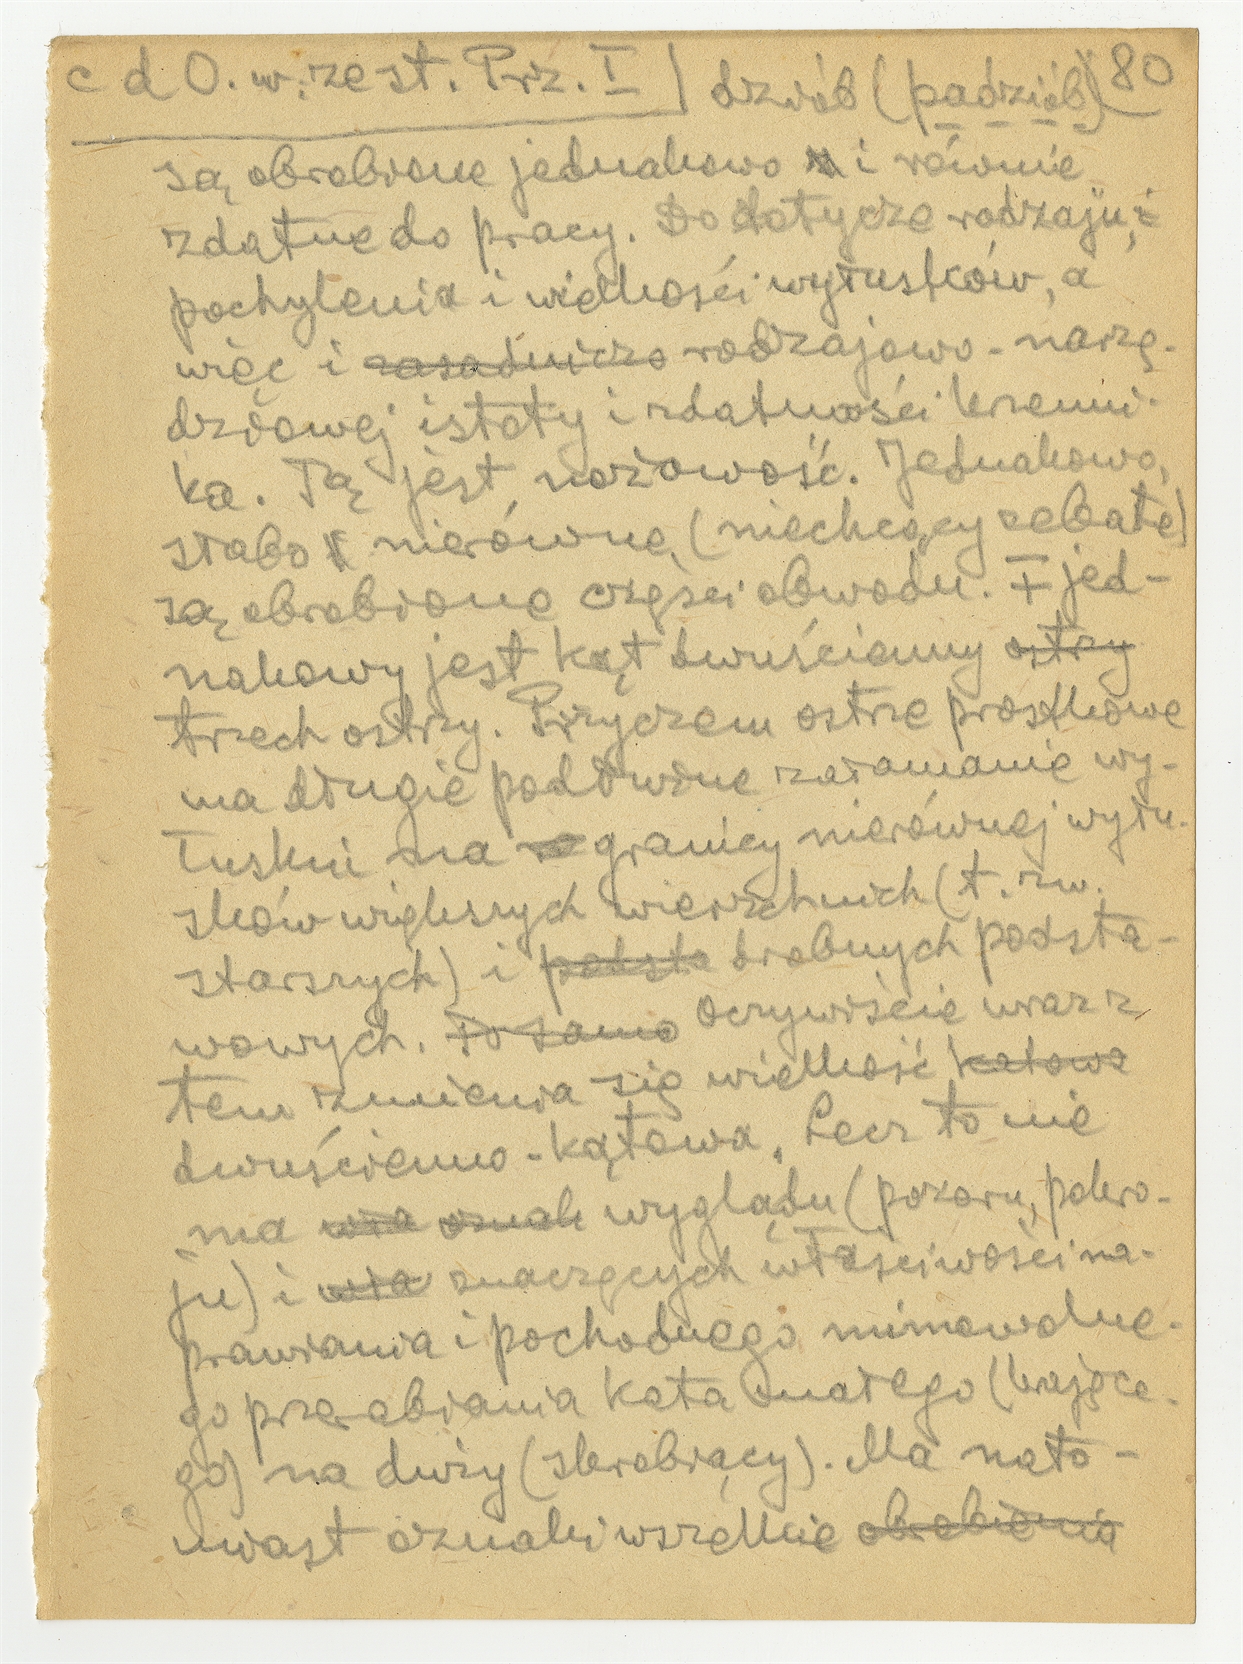 c d O. w. zest. Prz. I | dziób (padziób) 80
są obrobione jednakowo i równie
zdatne do pracy. Do dotycze rodzaju, i
pochylenia i wielkości wyłusków, a
więc i zasadniczo rodzajowo-narzę-
dziowej istoty i zdatności krzemni-
ka. Tą jest nożowość. Jednakowo,
słabo nierówne, (niechcący zębate)
są obrobione części obwodu. I jed-
nakowy jest kąt dwuścienny ostry
trzech ostrzy. Przyczem ostrze prostkowe
ma długie podłużne załamanie wy-
łuski na granicy nierównej wyłu-
sków większych wierzchnich (t. zw.
starszych) i podsta drobnych podsta-
wowych. To samo Oczywiście wraz z
tem zmienia się wielkość katowa
dwuścienno-kątowa. Lecz to nie
ma wła oznak wyglądu (pozoru, pokro-
ju) i wła znaczących właściwości na-
prawiania i pochodnego mimowolne-
go przerabiania kąta małego (krające-
go) na duży (skrobiący). Ma nato-
miast oznaki wszelkie obrobienia